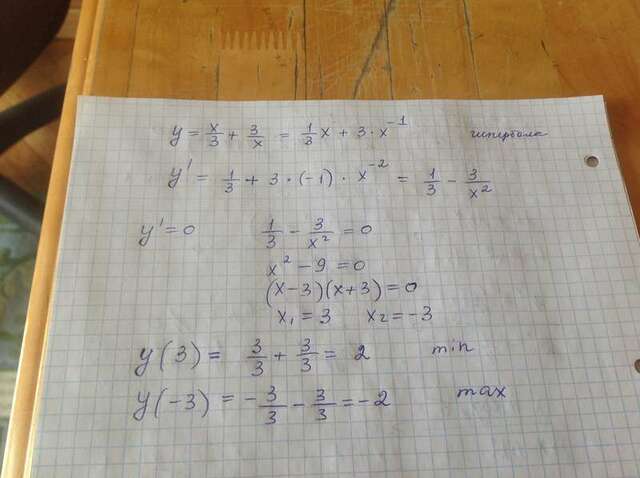 y = x/3 + 3/x = 1/3 x + 3 · x^-1 гипербола
y' = 1/3 + 3 · (-1) · x^-2 = 1/3 - 3/x^2
y' = 0 1/3 - 3/x^2 = 0
x^2 - 9 = 0
(x-3)(x+3) = 0
x₁ = 3 x₂ = -3
y(3) = 3/3 + 3/3 = 2 min
y(-3) = -3/3 - 3/3 = -2 max